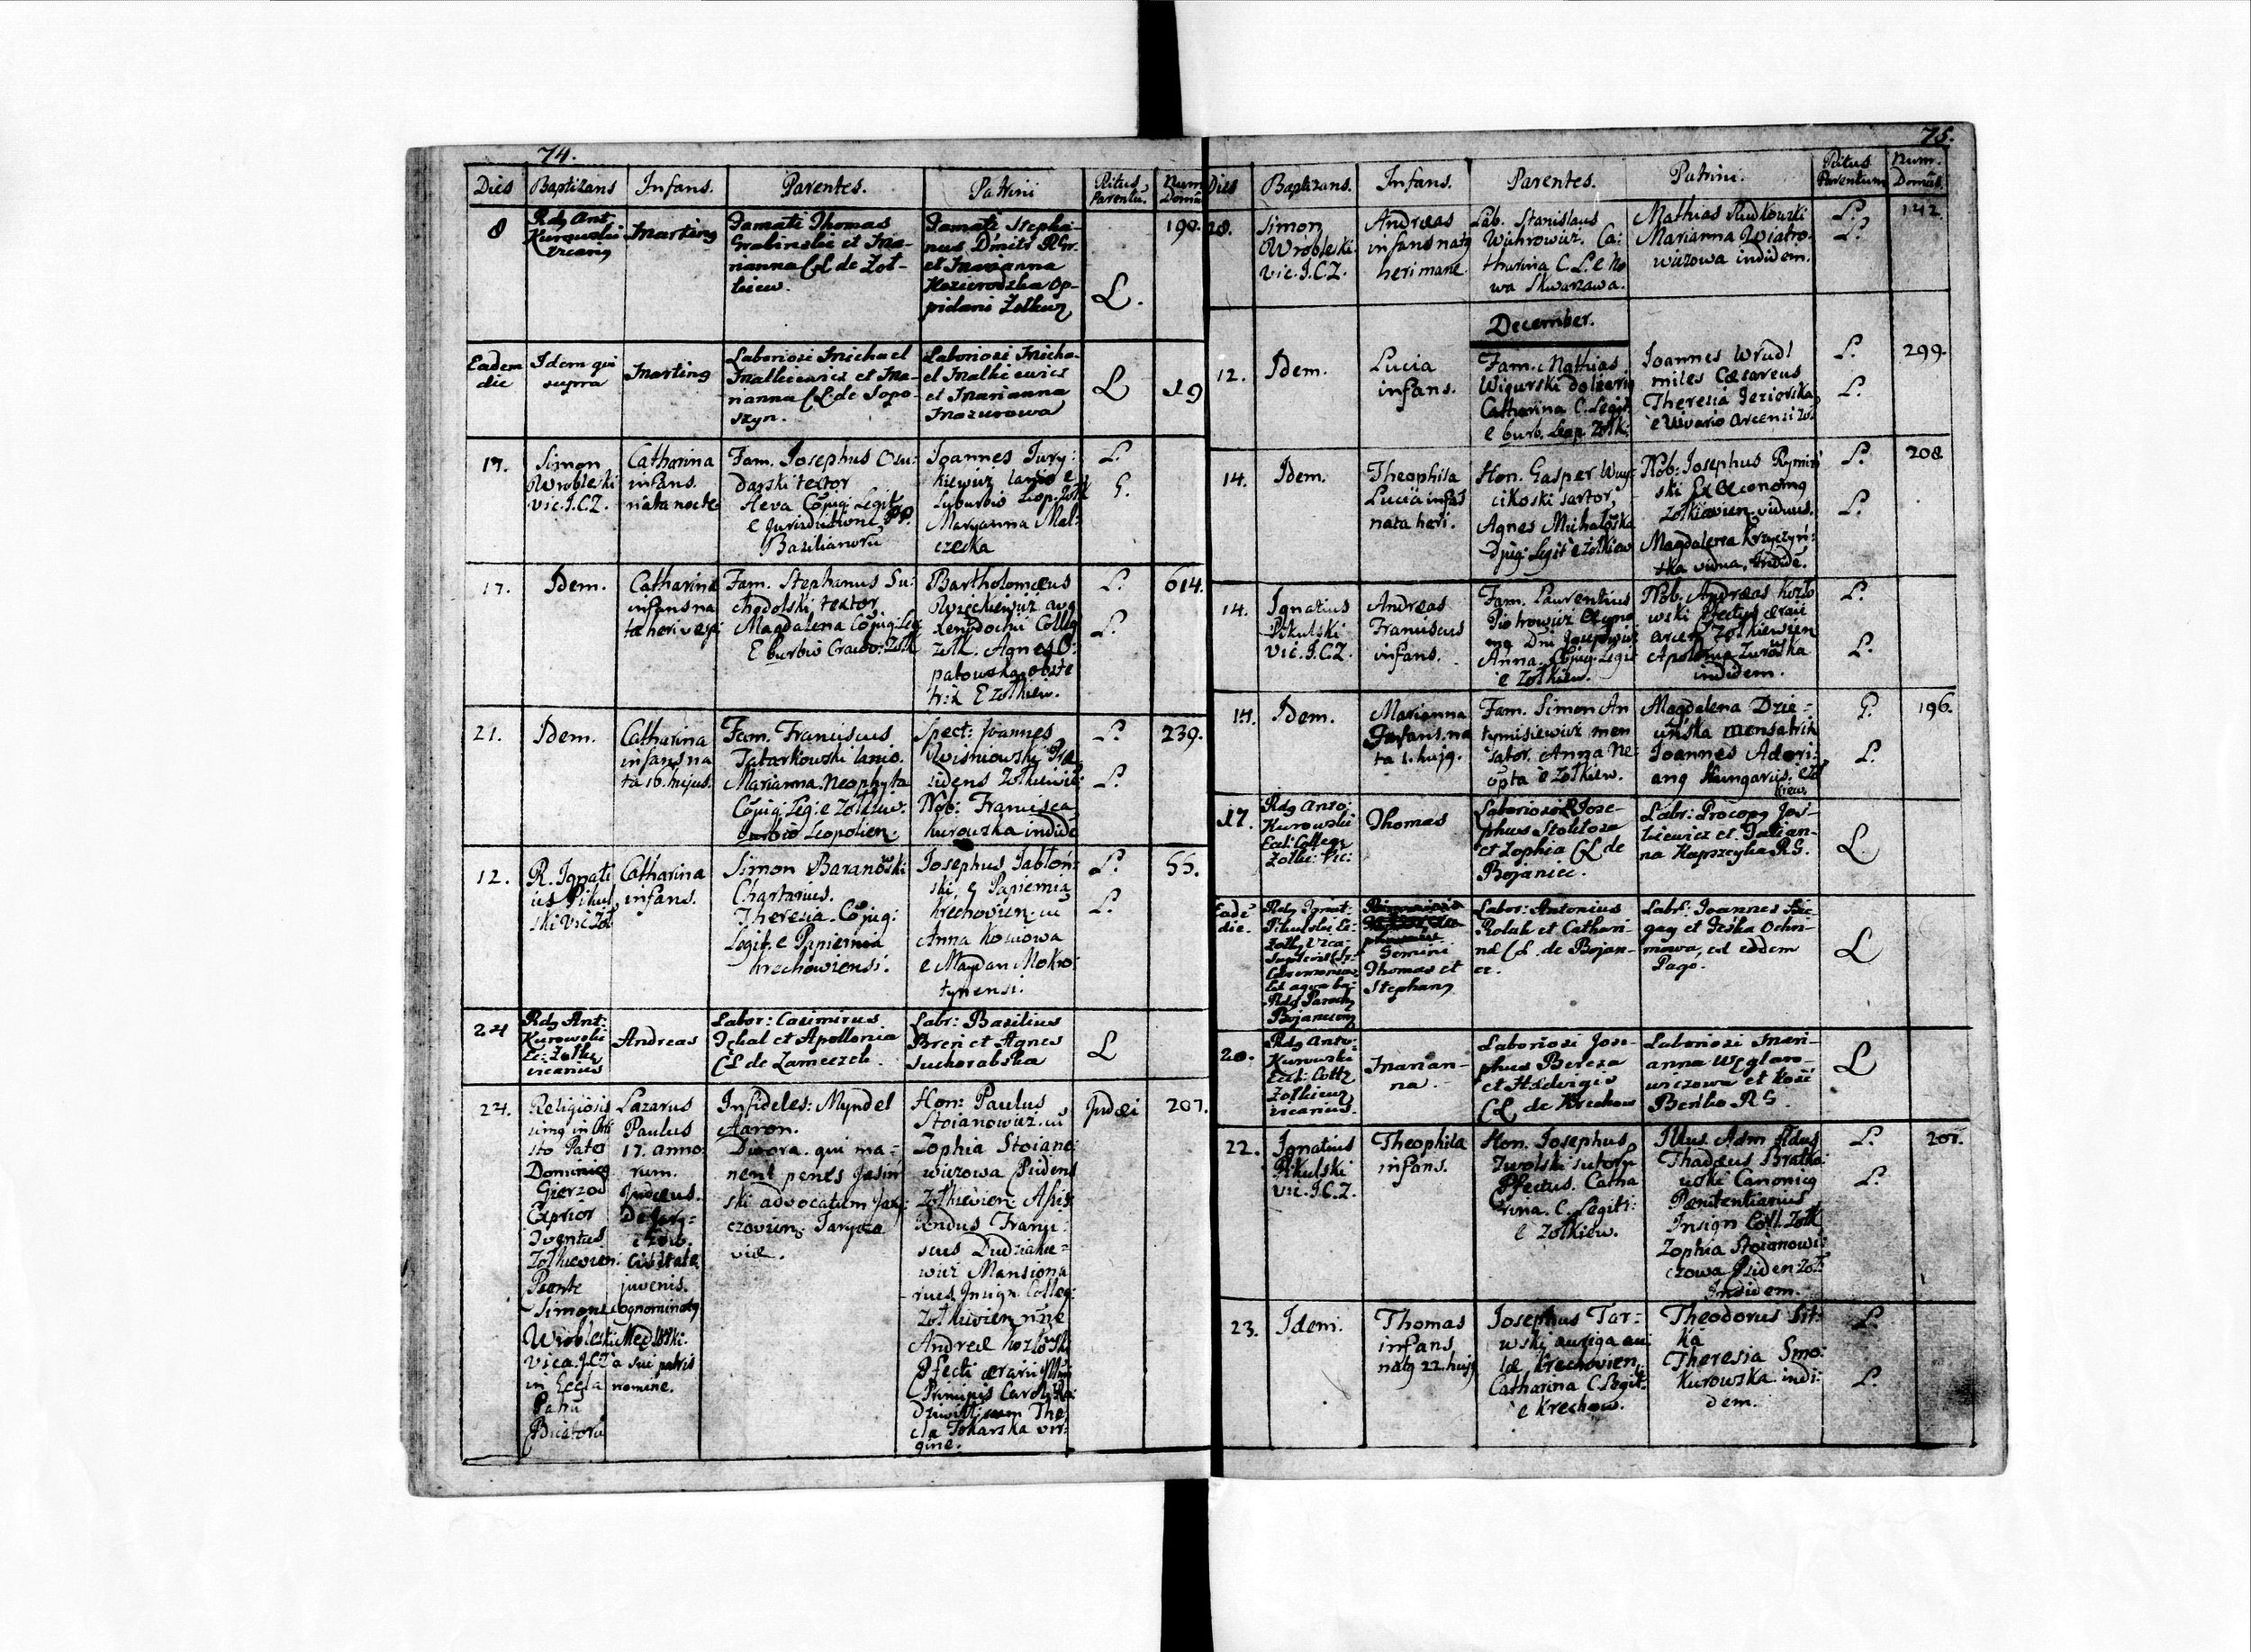 74.
Dies Baptizans Infans. Parentes. Patrini Ritus Parentu. Num Domus
8
Rdg Ant.
Kurowski
vicarig
Marting
Famati Thomas
Grabinski et Ma-
rianna CL de Żoł-
kiew.
Famati Stepha-
nus Dmitr RGr.
et Marianna
Kozierodzka op-
pidani Zolkiew
L.
190.
Eadem
die
Idem qui
supra
Marting
Laboriosi Michael
Malkiewicz et Ma-
rianna CL de Sopo-
szyn.
Laboriosi Micha-
el Malkiewicz
et Marianna
Mazurowa
L
19
17.
Simon
Wrobleski
vic. I.C.Z.
Catharina
infans.
nata nocte
Fam. Josephus Osu-
darski textor
Heva Cõjug: Legit
e Jurisdictione PP.
Basilianorũ
Joannes Jury-
kiewicz lanio e
suburbio Leop. Zołk
Maryanna Mal-
czecka
L.
G.
17.
Idem.
Catharina
infans na
ta heri vesp:
Fam. Stephanus Su-
chodolski, textor
Magdalena Cõjug: Leg
E burbio Cracov: Zołk
Bartholomæus
Xenodochii Colleg
Zołk. Agnes O-
patowska obste
trix E Zołkiew.
L.
L.
614.
21.
Idem.
Catharina
infans na
ta 16. hujus.
Fam. Franciscus
Tatarkowski lanio.
Marianna. Neophyta
Cõjug: Leg: e Zołkiew.
burbio Leopolien:
Spect: Joannes
Wiśniowski Præ
sidens Zołkiewie:
Nob: Francisca
Kurowska indidẽ
L.
L.
239.
12.
R. Ignati
us Pikul
ski Vic Zoł
Catharina
infans.
Simon Baranowski
Chartarius.
Theresia. Cõjug:
Legit. e Papiernia
Krechowiensi.
Josephus Jabłoń-
ski, e Papiernia
Krechovien. cũ
Anna Koniowa
e Maydan Mokro-
tynensi.
L.
L.
55.
24
Rdg Ant:
Kurowski
Ec: Zołk
vicarius
Andreas
Labor: Casimirus
Ichal et Apollonia
CL de Zameczek
Labr: Basilius
Bren et Agnes
Suchorabska
L
24.
Religiosis
simg in Chri
sto Pater
Dominicg
Gierzod
Exprior
Zołkievien:
Simone
Wrobleski
Vica. I.C.Z
in Eccla
Patrũ
Lazarus
Paulus
17. anno-
rum.
Judæus.
civitate
juvenis.
cognominatg
a sui patris
nomine.
Infideles: Myndel
Aaron.
Dwora. qui ma-
nent penes Jasiń
ski advocatum
Hon: Paulus
Stoianowicz. cũ
Zophia Stoiano-
wiczowa Psidens
Zołkievien: Assis:
Rndus Franci-
scus Dudziakie-
wicz Mansiona
rius Insign. Colleg:
Zołkievien
Andreæ Kozłowski
Pfecti ærarii
Principis Caroli Ra-
dziwiłł, cum The
cla Tokarska vir-
gine.
Judæi
207.
75.
Dies Baptizans. Infans. Parentes. Patrini. Ritus Parentum Num. Domus.
28.
Simon
Wrobleski
vic. I.C.Z.
Andreas
infans natg
heri mane.
Lab. Stanislaus
Wiatrowicz. Ca-
tharina C.L. e No
wa Skwarzawa.
Mathias Rudkowski
Marianna Wiatro-
wiczowa indidem.
L.
L.
142.
December.
12.
Idem.
Lucia
infans.
Fam. Mathias
Wigurski doliarig
Catharina C. Legit.
e burb. Leop. Zołk:
Joannes Wrudl
miles Cæsareus
Theresia Jeziorska
e Vivario arcensi Zoł.
L.
L.
299.
14.
Idem.
Theophila
Lucia infãs
nata heri.
Hon. Gasper Woy-
cikoski sartor,
Agnes Michalska
Cõjug: Legit e Zołkiew
Nob: Josephus Rymiń
ski Exœconomg
Zołkievien. viduus.
Magdalena Krzyczyń-
ska vidua. indidẽ.
L.
L.
208
14.
Ignatius
Pikulski
vic. I.C.Z.
Andreas
Franciscus
infans.
Fam. Laurentius
Piotrowicz
Anna. Cõjug: Legit
e Zołkiew.
Nob. Andreas Kozło
wski Pfectus ærarii
arcen Zołkiewien
Apolonia Zurawska
indidem.
L.
L.
14.
Idem.
Marianna
Infans. na
ta 1. hujg.
Fam. Simon An
tymisiewicz men
sator. Anna Ne-
opta e Zołkiew.
Magdalena Dzie-
uńska mensatrix
Joannes Adori-
ang Hungarus. e Zoł
kiew
G.
L.
196.
17.
Rdg Anto:
Kurowski
Ecl: Colleg
Zołki: Vic:
Thomas
Laboriosi Jose-
phus Stoklosa
et Zophia CL de
Bojaniec.
Labr: Procopg Jos-
kiewicz et Tatian-
na Kapszeyka RG.
L
Eadẽ
die.
Rdg Ignat:
Pikulski Ec:
Zołk Vica-
Rdg Paroch
Bojanecens
Gemini
Thomas et
Stephang
Labor: Antonius
Rolak et Cathari-
na CL de Bojan-
ec.
Labr: Joannes
et Teska Ochri-
mowa, ex eodem
Pago.
L
20.
Rdg Anto-
Kurowski
Ecl: Coll
Zołkiew
vicarius.
Marian-
na.
Laboriosi Jose-
phus Bereza
et Hedvigis
CL de Krechow
Laboriosi Mari-
anna Węglaro-
wiczowa et Kość
Beńko RG
L
22.
Ignatius
Pikulski
vic. I.C.Z.
Theophila
infans.
Hon. Josephus
Zwolski sutor
Pfectus. Catha
rina. C. Legit:
e Zołkiew.
Illus. Adm Rdus
Thadæus Bratko-
wski Canonicg
Pœnitentiarius
Insign Coll. Zołk
Zophia Stoianowi-
czowa Psiden Zoł:
Indidem.
L.
L.
207.
23.
Idem.
Thomas
infans
natg 22. hujg
Josephus Tar-
wski auriga au
læ Krechovien.
Catharina C. Legit:
e Krechow.
Theodorus Sit-
ka
Theresia Smo-
kurowska indi-
dem.
L.
L.